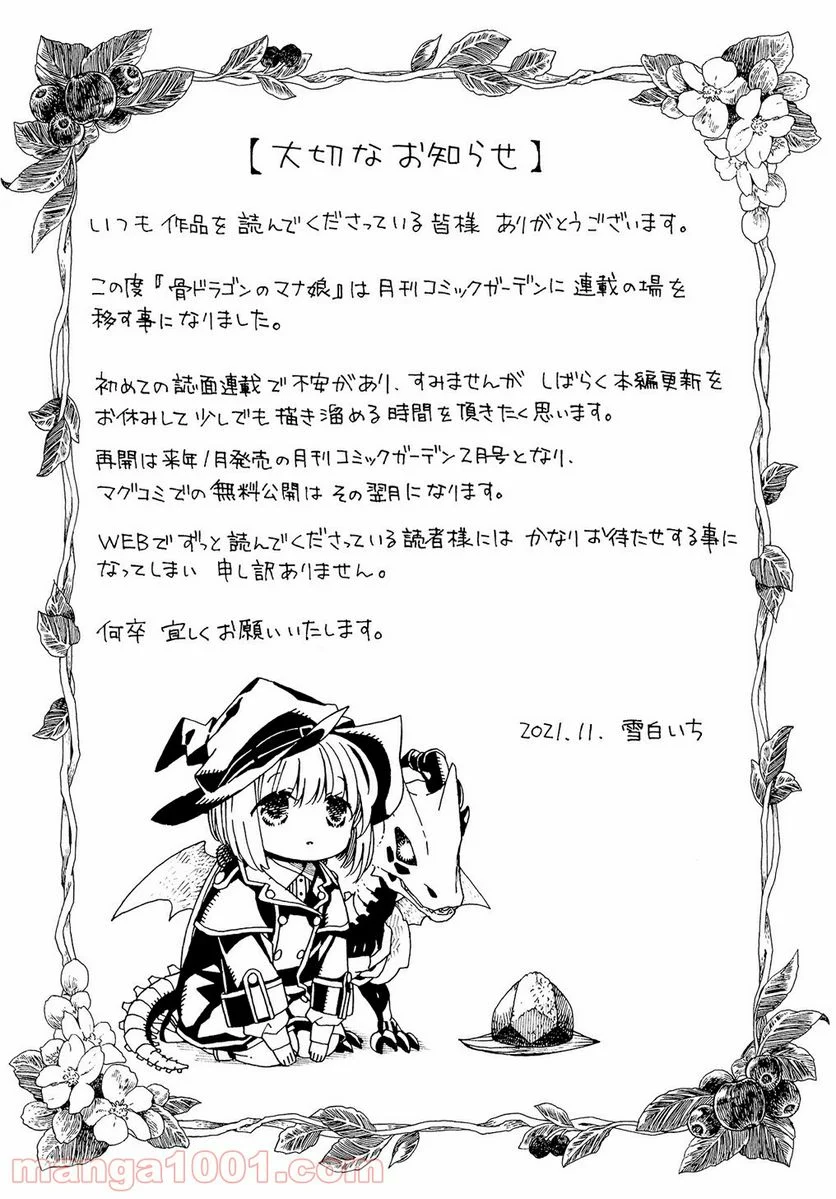 【大切なお知らせ】
いつも作品を読んでくださっている皆様 ありがとうございます。
この度『骨ドラゴンのマナ娘』は月刊コミックガーデンに連載の場を
移す事になりました。
初めての誌面連載で不安があり、すみませんが しばらく本編更新を
お休みして少しでも描き溜める時間を頂きたく思います。
再開は来年1月発売の月刊コミックガーデン2月号となり、
マグコミでの無料公開はその翌月になります。
WEBでずっと読んでくださっている読者様には かなりお待たせする事に
なってしまい 申し訳ありません。
何卒 宜しくお願いいたします。
2021.11. 雪白いち
manga1001.com